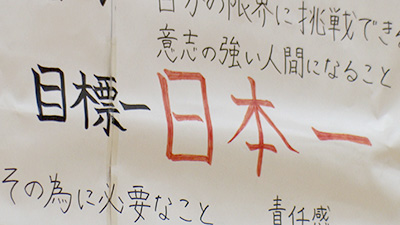 自分の限界に挑戦でき
意志の強い人間になること
目標一日本一
その為に必要なこと
責任感